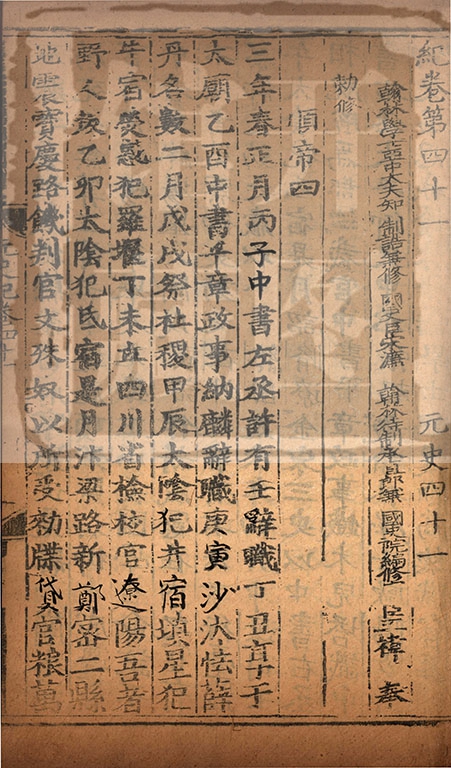 紀卷第四十一 元史四十一
翰林學士亞中大夫知制誥兼修國史臣宋濂 翰林待制承直郎兼國史院編修 王禕 奉
勅修
順帝四
三年春正月丙子中書左丞許有壬辭職丁丑享于
太廟乙酉中書平章政事納麟辭職庚寅沙汰怯薛
丹名數二月戊戌祭社稷甲辰太陰犯井宿填星犯
牛宿熒惑犯羅堰丁未立四川省檢校官遼陽吾者
野人叛乙卯太陰犯氐宿是月汴梁路新鄭密二縣
地震寶慶路饑判官文殊奴以所受勑牒貸官糧萬